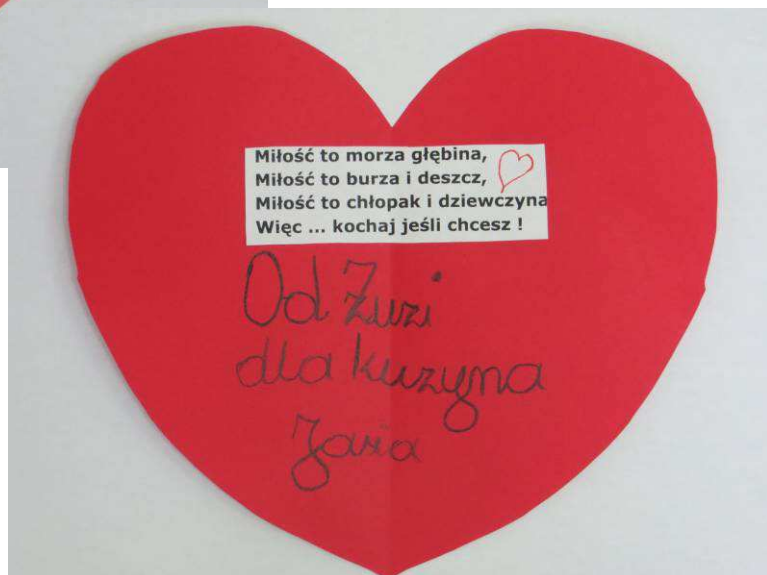 Miłość to morza głębina,
Miłość to burza i deszcz,
Miłość to chłopak i dziewczyna
Więc ... kochaj jeśli chcesz !
Od Zuzi
dla kuzyna
Jasia